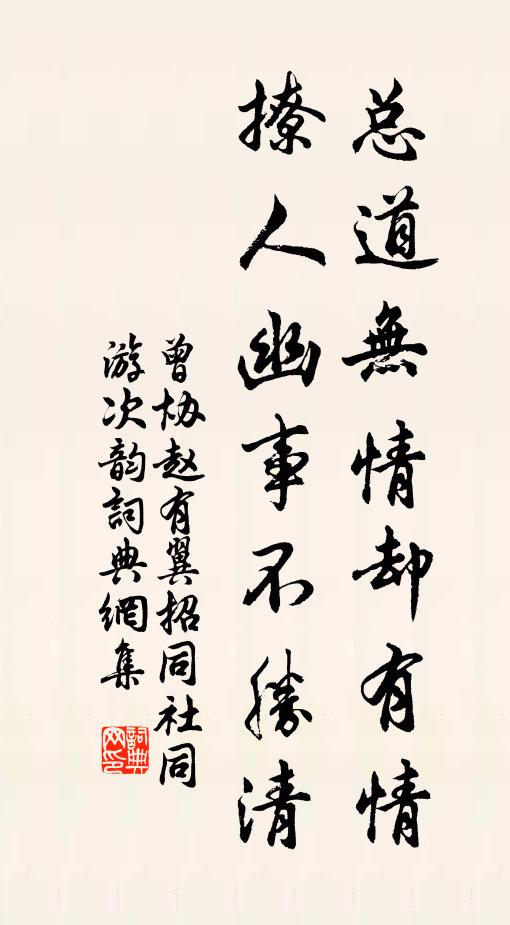 总道無情却有情
撩人幽事不勝清
曾协赵有翼招同社同
游次韵詞典網集
詞典
网印